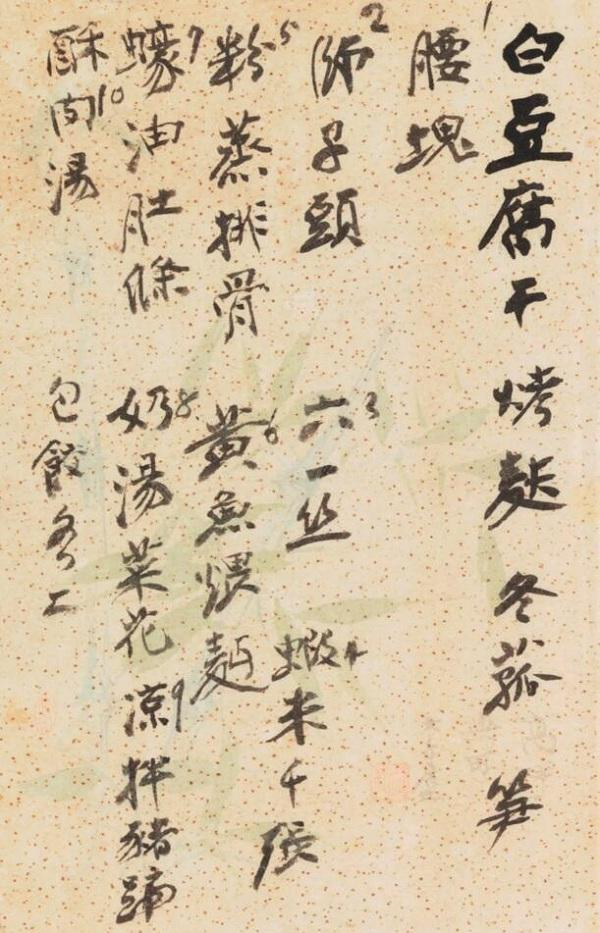 白豆腐干 烤麩 冬菰 笋
腰塊 1
師子頭 2 六一丝 3 蝦米千張 4
粉蒸排骨 5 黃魚煨麵 6
蠔油肚條 7 奶湯菜花 8 凉拌豬蹄 9
酥肉湯 10 包餃